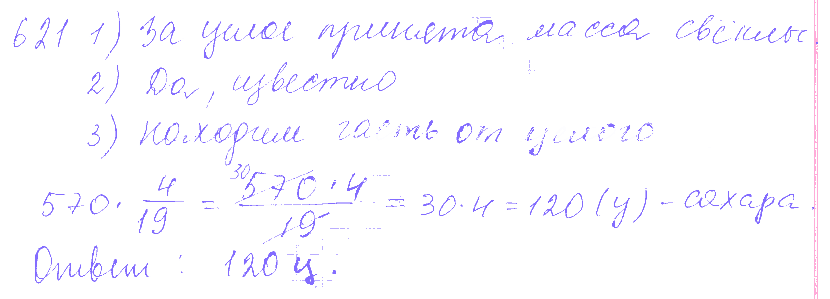 621 1) За целое принята масса свёклы
2) Да, известно
3) Находим часть от целого
570 · 4/19 = 30 570 · 4 / 19 = 30 · 4 = 120 (ц) - сахара.
Ответ: 120 ц.